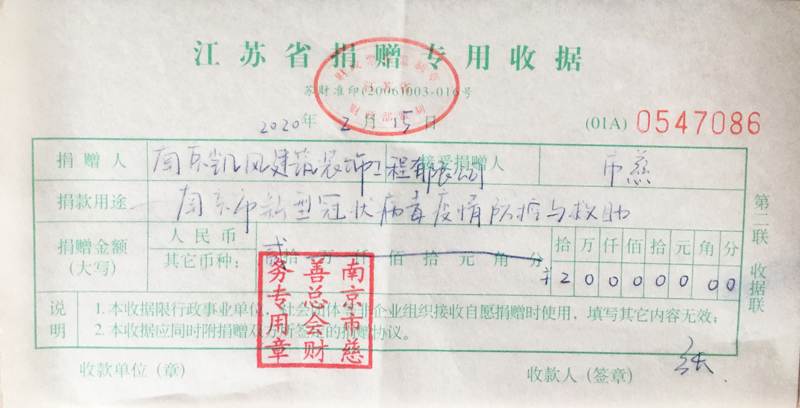 江苏省捐赠专用收据
苏财准印(2006)003-016号
2020年 2月 15日 (01A) 0547086
捐赠人 南京凯风建筑装饰工程有限公司 接受捐赠人 市慈
捐款用途 南京市新型冠状病毒疫情防控与救助
捐赠金额(大写) 人民币 其它币种: 贰拾万仟佰拾元角分 拾万仟佰拾元角分
¥20000000
说明 1.本收据限行政事业单位、社会团体等非企业组织接收自愿捐赠时使用,填写其它内容无效;
2.本收据应同时附捐赠双方所签定的捐赠协议。
收款单位(章) 收款人(签章)
第二联 收据联
南京市慈善总会财务专用章